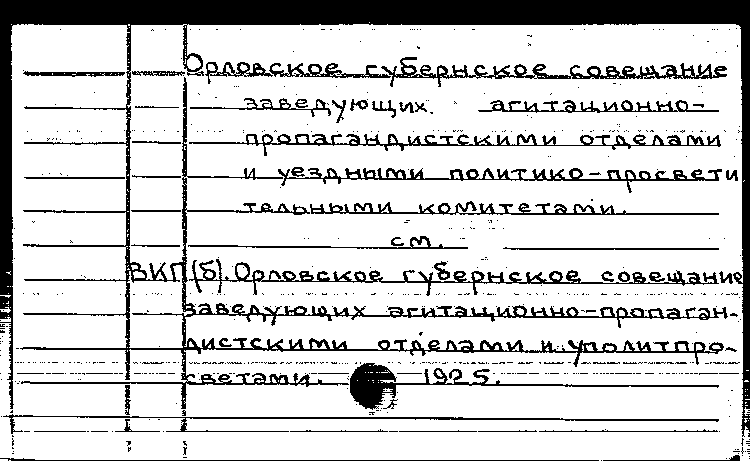 Орловское губернское совещание
заведующих. агитационно-
пропагандистскими отделами
и уездными политико-просвети
тельными комитетами.
см.
ВКП(б). Орловское губернское совещание
заведующих агитационно-пропаган-
дистскими отделами и уполитпро-
светами. 1925.